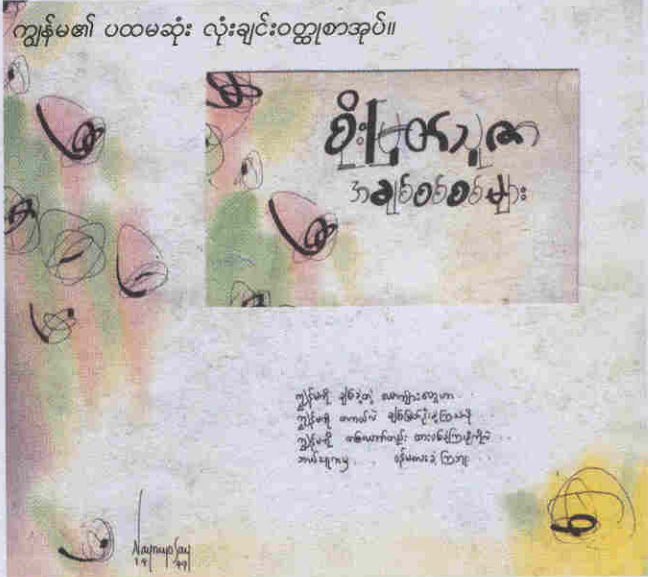 ကျွန်မ၏ ပထမဆုံး လုံးချင်းဝတ္ထုစာအုပ်။
စိုးမြတ်သူဇာ
အချစ်စစ်စစ်များ
ကျွန်မကို ချစ်ခဲ့တဲ့ ယောက်ျားတွေဟာ
ကျွန်မကို တကယ်ပဲ ချစ်မြတ်နိုးခဲ့ကြပေမဲ့
ကျွန်မကို တစ်ယောက်တည်း ထားပစ်ခဲ့ကြဖို့ကိုလဲ
ဘယ်သူကမှ ဝန်မလေးခဲ့ကြဘူး
NayMyoSay